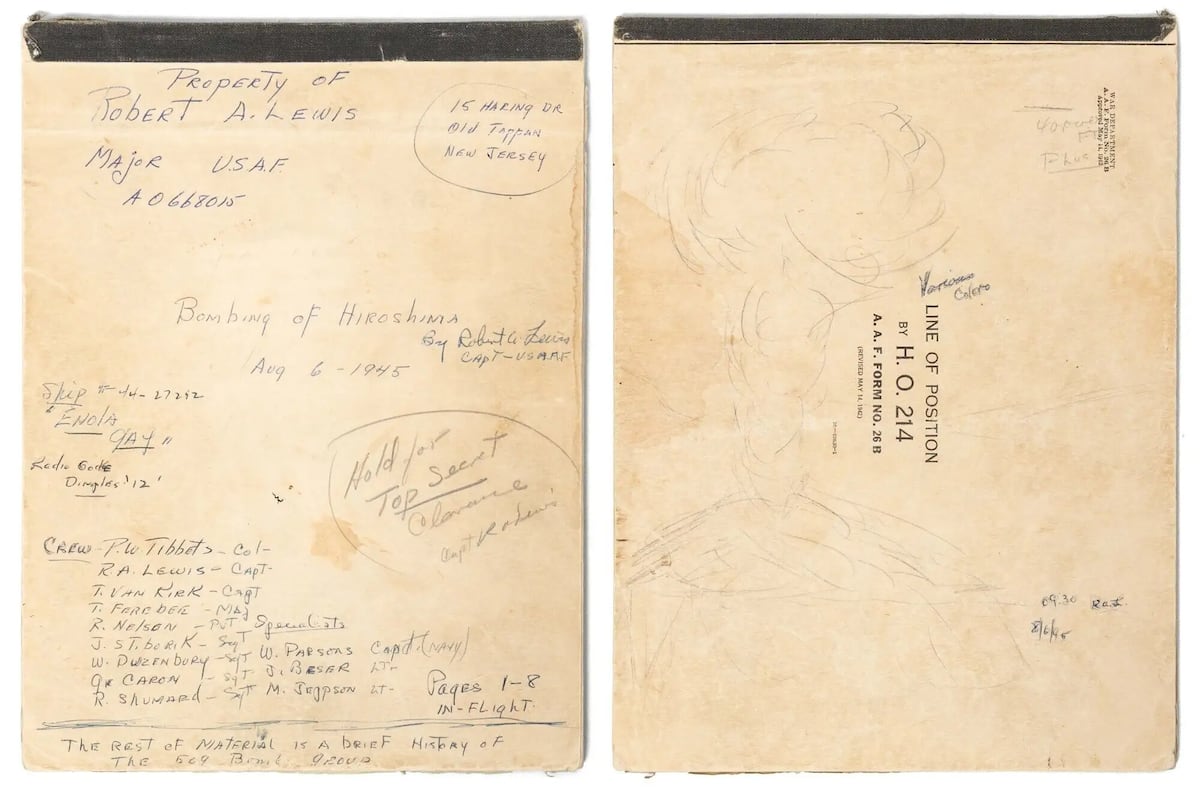 Property of
Robert A. Lewis
15 Haring Dr
Old Tappan
New Jersey
Major USAF.
AO668015
Bombing of Hiroshima
By Robert A. Lewis
Capt - USAAF
Aug 6 - 1945
Ship # 44-27292
"Enola
Gay"
Radio Code
Dimples '12'
Hold for
Top Secret
Clearance
Capt R A Lewis
Crew - P.W Tibbets - Col-
R.A. Lewis - Capt-
T. Van Kirk - Capt
T. Ferebee - Maj
R. Nelson - Pvt
J. Stiborik - Sgt
W. Duzenbury - Sgt
G R Caron - Sgt
R. Shumard - Sgt
Specialists
W. Parsons Capt. (Navy)
J. Beser Lt-
M. Jeppson Lt-
Pages 1-8
In-Flight.
The rest of material is a brief history of
the 509 Bomb. group
WAR DEPARTMENT
A. A. F. Form No. 26 B
Approved May 14, 1942
Plus
Various
Colors
LINE OF POSITION
BY H. O. 214
A. A. F. FORM NO. 26 B
(REVISED MAY 14, 1942)
09:30 R.a.L.
8/6/45